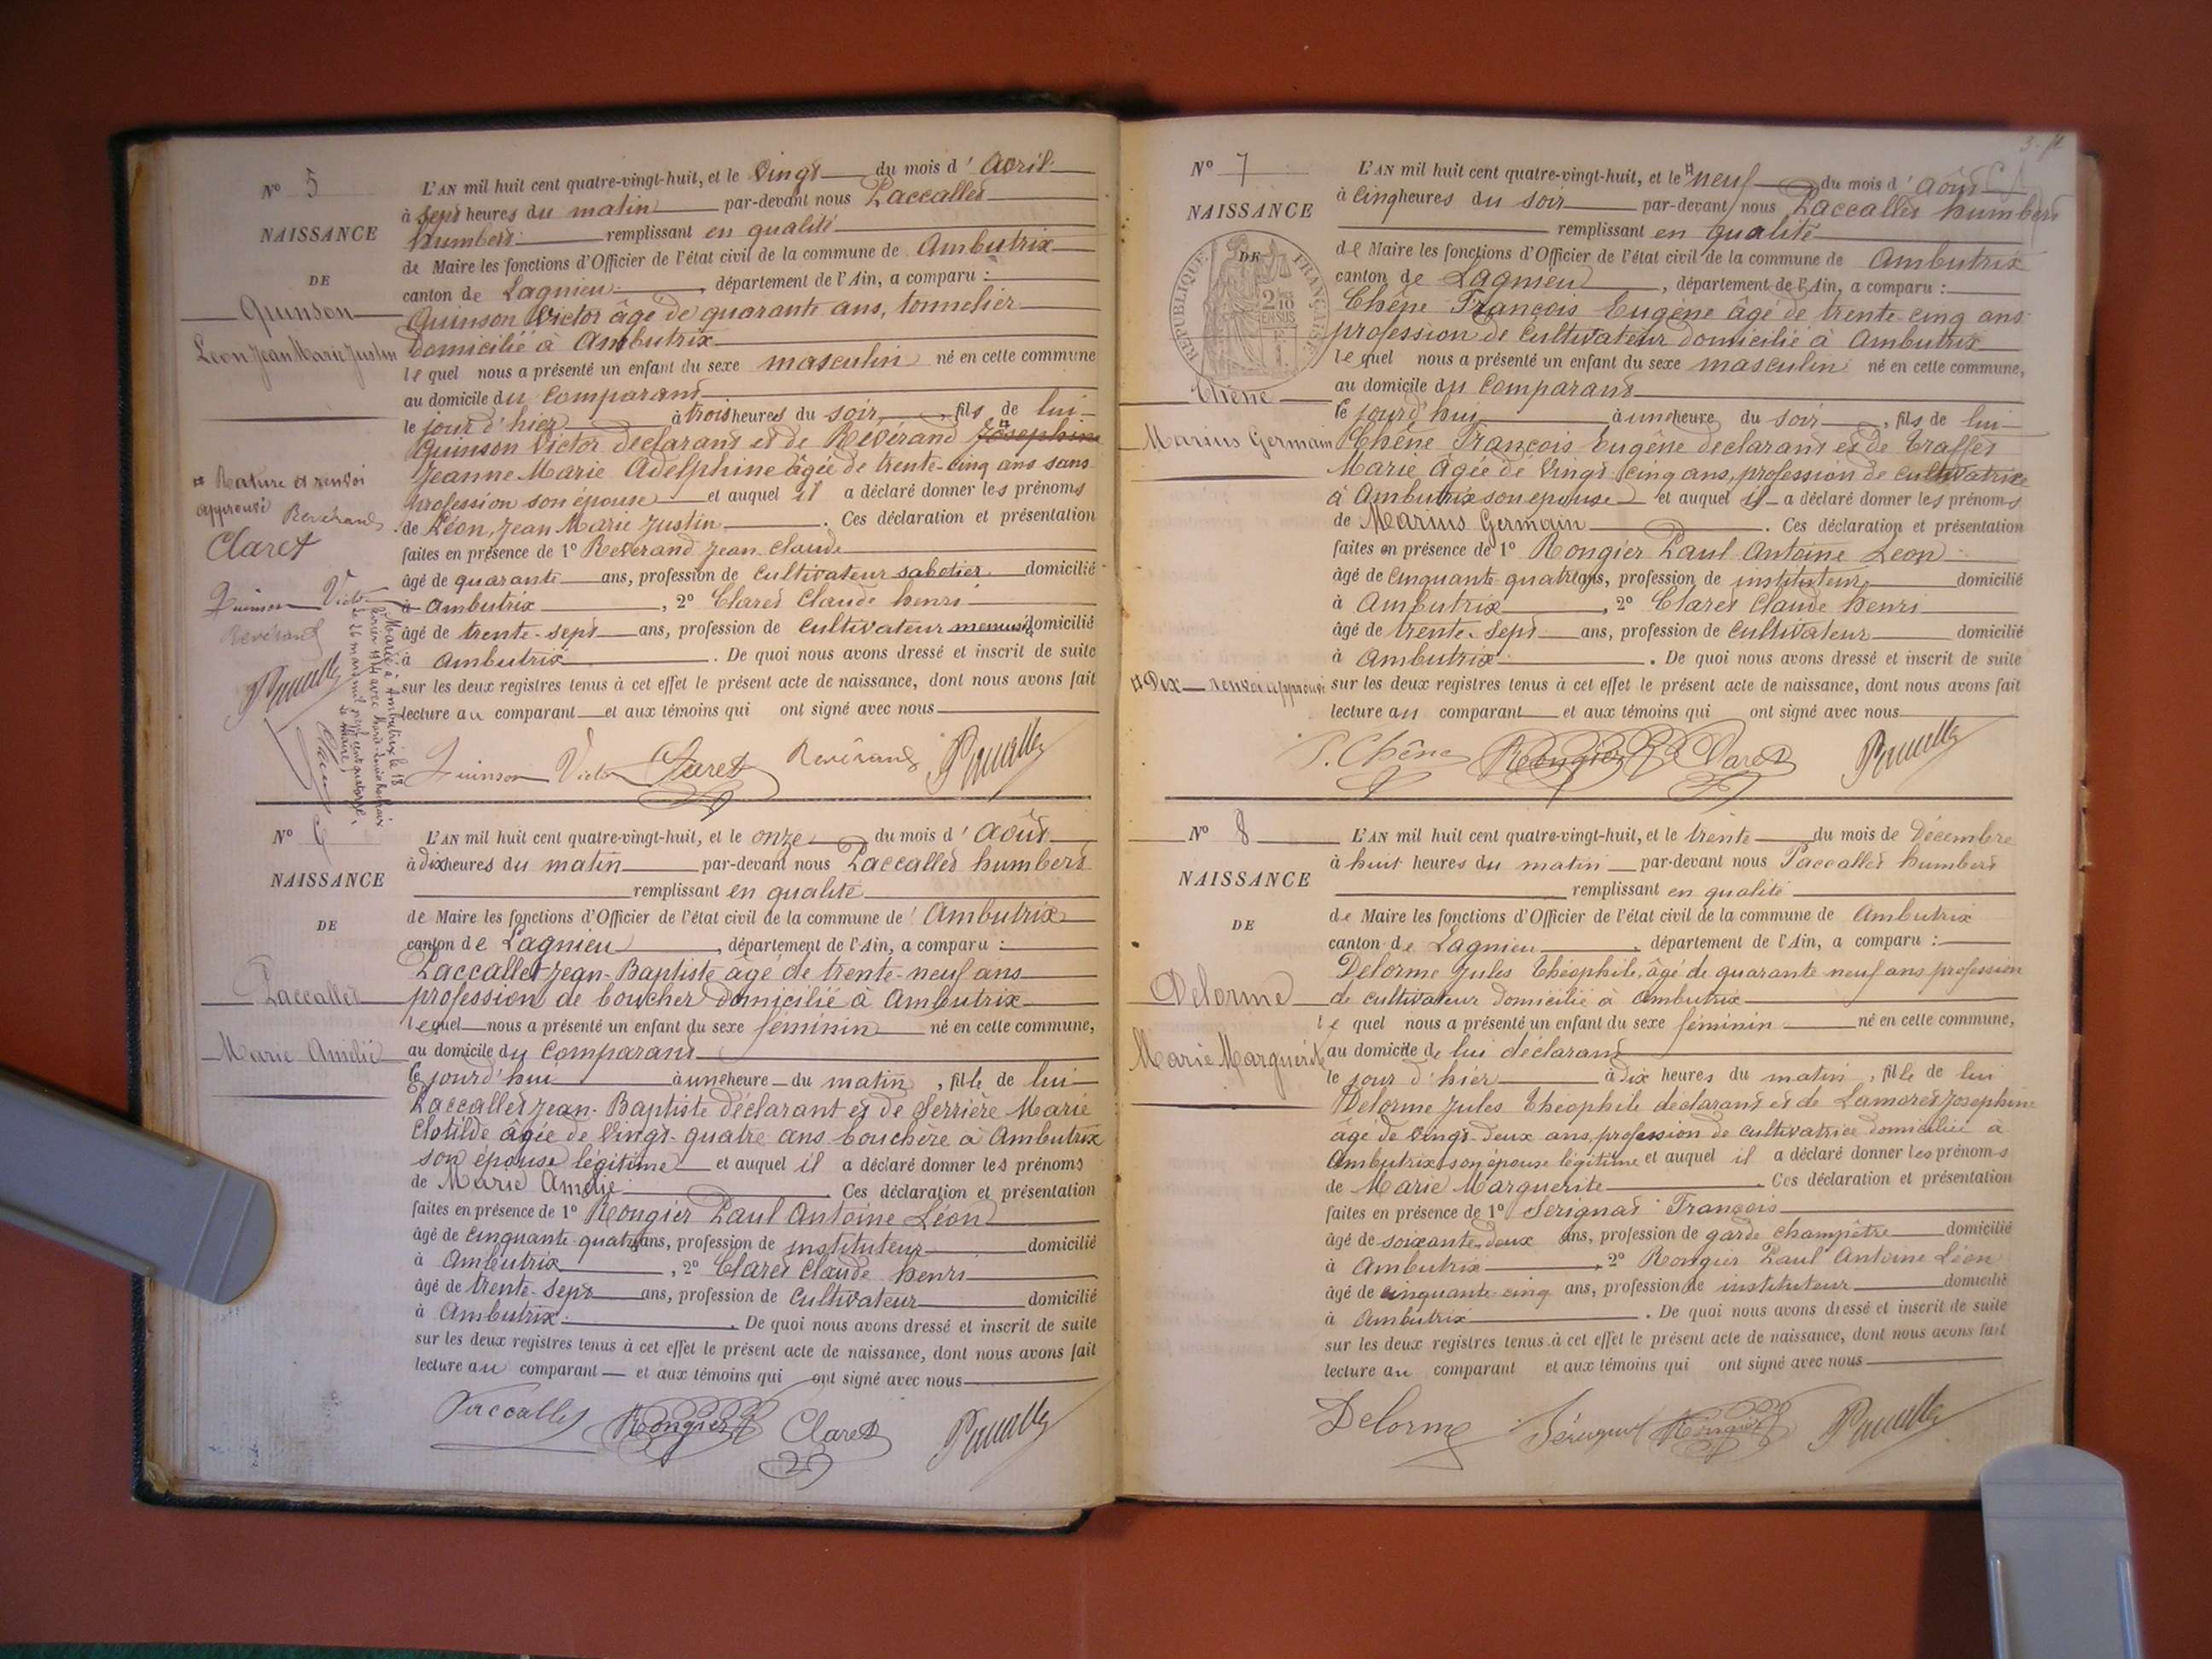 N° 5
NAISSANCE
DE
Quinson
Léon Jean Marie Justin
L'AN mil huit cent quatre-vingt-huit, et le vingt du mois d'avril
à sept heures du matin par-devant nous Paccallet
humbert remplissant en qualité
de Maire les fonctions d'Officier de l'état civil de la commune de Ambutrix
canton de Lagnieu, département de l'Ain, a comparu :
Quinson Victor âgé de quarante ans, tonnelier
domicilié à Ambutrix
lequel nous a présenté un enfant du sexe masculin né en cette commune
au domicile du comparant
le jour d'hier à trois heures du soir, fils de lui
Quinson Victor déclarant et de Révérand Josephine
Jeanne Marie Adelphine âgée de trente-cinq ans sans
profession son épouse et auquel il a déclaré donner les prénoms
de Léon, Jean Marie Justin. Ces déclaration et présentation
faites en présence de 1° Reverand Jean Claude
âgé de quarante ans, profession de cultivateur sabotier domicilié
à Ambutrix, 2° Claret Claude henri
âgé de trente-sept ans, profession de cultivateur domicilié
à Ambutrix. De quoi nous avons dressé et inscrit de suite
sur les deux registres tenus à cet effet le présent acte de naissance, dont nous avons fait
lecture au comparant et aux témoins qui ont signé avec nous
Quinson Victor Claret Revérand Paccallet
¤ Rature et renvoi
approuvé Revérand
Claret
Quinson Victor
Revérand
Paccallet
Marié à Ambutrix le 18
février 1914 avec
Le 26 mars mil neuf cent quatorze.
Le Maire,
N° 6
NAISSANCE
DE
Paccallet
Marie Amélie
L'AN mil huit cent quatre-vingt-huit, et le onze du mois d'Août
à dix heures du matin par-devant nous Paccallet humbert
remplissant en qualité
de Maire les fonctions d'Officier de l'état civil de la commune de Ambutrix
canton de Lagnieu, département de l'Ain, a comparu :
Paccallet Jean-Baptiste âgé de trente-neuf ans
profession de boucher domicilié à Ambutrix
lequel nous a présenté un enfant du sexe féminin né en cette commune,
au domicile du comparant
le jourd'hui à une heure du matin, fille de lui
Paccallet Jean-Baptiste déclarant et de Serrière Marie
Clotilde âgée de vingt-quatre ans bouchère à Ambutrix
son épouse légitime et auquel il a déclaré donner les prénoms
de Marie Amélie. Ces déclaration et présentation
faites en présence de 1° Rongier Paul Antoine Léon
âgé de cinquante quatre ans, profession de instituteur domicilié
à Ambutrix, 2° Claret Claude henri
âgé de trente-sept ans, profession de cultivateur domicilié
à Ambutrix. De quoi nous avons dressé et inscrit de suite
sur les deux registres tenus à cet effet le présent acte de naissance, dont nous avons fait
lecture au comparant et aux témoins qui ont signé avec nous
Paccallet Rongier Claret Paccallet
N° 7
NAISSANCE
DE
RÉPUBLIQUE FRANÇAISE
Chêne
Marius Germain
L'AN mil huit cent quatre-vingt-huit, et le ¤ neuf du mois d'août
à cinq heures du soir par-devant nous Paccallet humbert
remplissant en qualité
de Maire les fonctions d'Officier de l'état civil de la commune de Ambutrix
canton de Lagnieu, département de l'Ain, a comparu :
Chêne François Eugène âgé de trente-cinq ans
profession de cultivateur domicilié à Ambutrix
lequel nous a présenté un enfant du sexe masculin né en cette commune,
au domicile du comparant
le jourd'hui à une heure du soir, fils de lui
Chêne François Eugène déclarant et de Traffet
Marie âgée de vingt cinq ans, profession de cultivatrice
à Ambutrix son épouse et auquel il a déclaré donner les prénoms
de Marius Germain. Ces déclaration et présentation
faites en présence de 1° Rongier Paul Antoine Leon
âgé de cinquante-quatre ans, profession de instituteur domicilié
à Ambutrix, 2° Claret Claude henri
âgé de trente-sept ans, profession de cultivateur domicilié
à Ambutrix. De quoi nous avons dressé et inscrit de suite
¤ Dix renvoi approuvé
sur les deux registres tenus à cet effet le présent acte de naissance, dont nous avons fait
lecture au comparant et aux témoins qui ont signé avec nous
Chêne Rongier Claret Paccallet
N° 8
NAISSANCE
DE
Delorme
Marie Marguérite
L'AN mil huit cent quatre-vingt-huit, et le trente du mois de Décembre
à huit heures du matin par-devant nous Paccallet humbert
remplissant en qualité
de Maire les fonctions d'Officier de l'état civil de la commune de Ambutrix
canton de Lagnieu, département de l'Ain, a comparu :
Delorme Jules Théophile, âgé de quarante neuf ans profession
de cultivateur domicilié à Ambutrix
lequel nous a présenté un enfant du sexe féminin né en cette commune,
au domicile de lui déclarant
le jour d'hier à dix heures du matin, fille de lui
Delorme Jules Théophile déclarant et de Lamoret Josephine
âgé de vingt-deux ans, profession de cultivatrice domiciliée à
Ambutrix son épouse légitime et auquel il a déclaré donner les prénoms
de Marie Marguerite. Ces déclaration et présentation
faites en présence de 1° Serignat François
âgé de soixante-deux ans, profession de garde champêtre domicilié
à Ambutrix, 2° Rongier Paul Antoine Léon
âgé de cinquante-cinq ans, profession de instituteur domicilié
à Ambutrix. De quoi nous avons dressé et inscrit de suite
sur les deux registres tenus à cet effet le présent acte de naissance, dont nous avons fait
lecture au comparant et aux témoins qui ont signé avec nous
Delorme Sérignat Rongier Paccallet